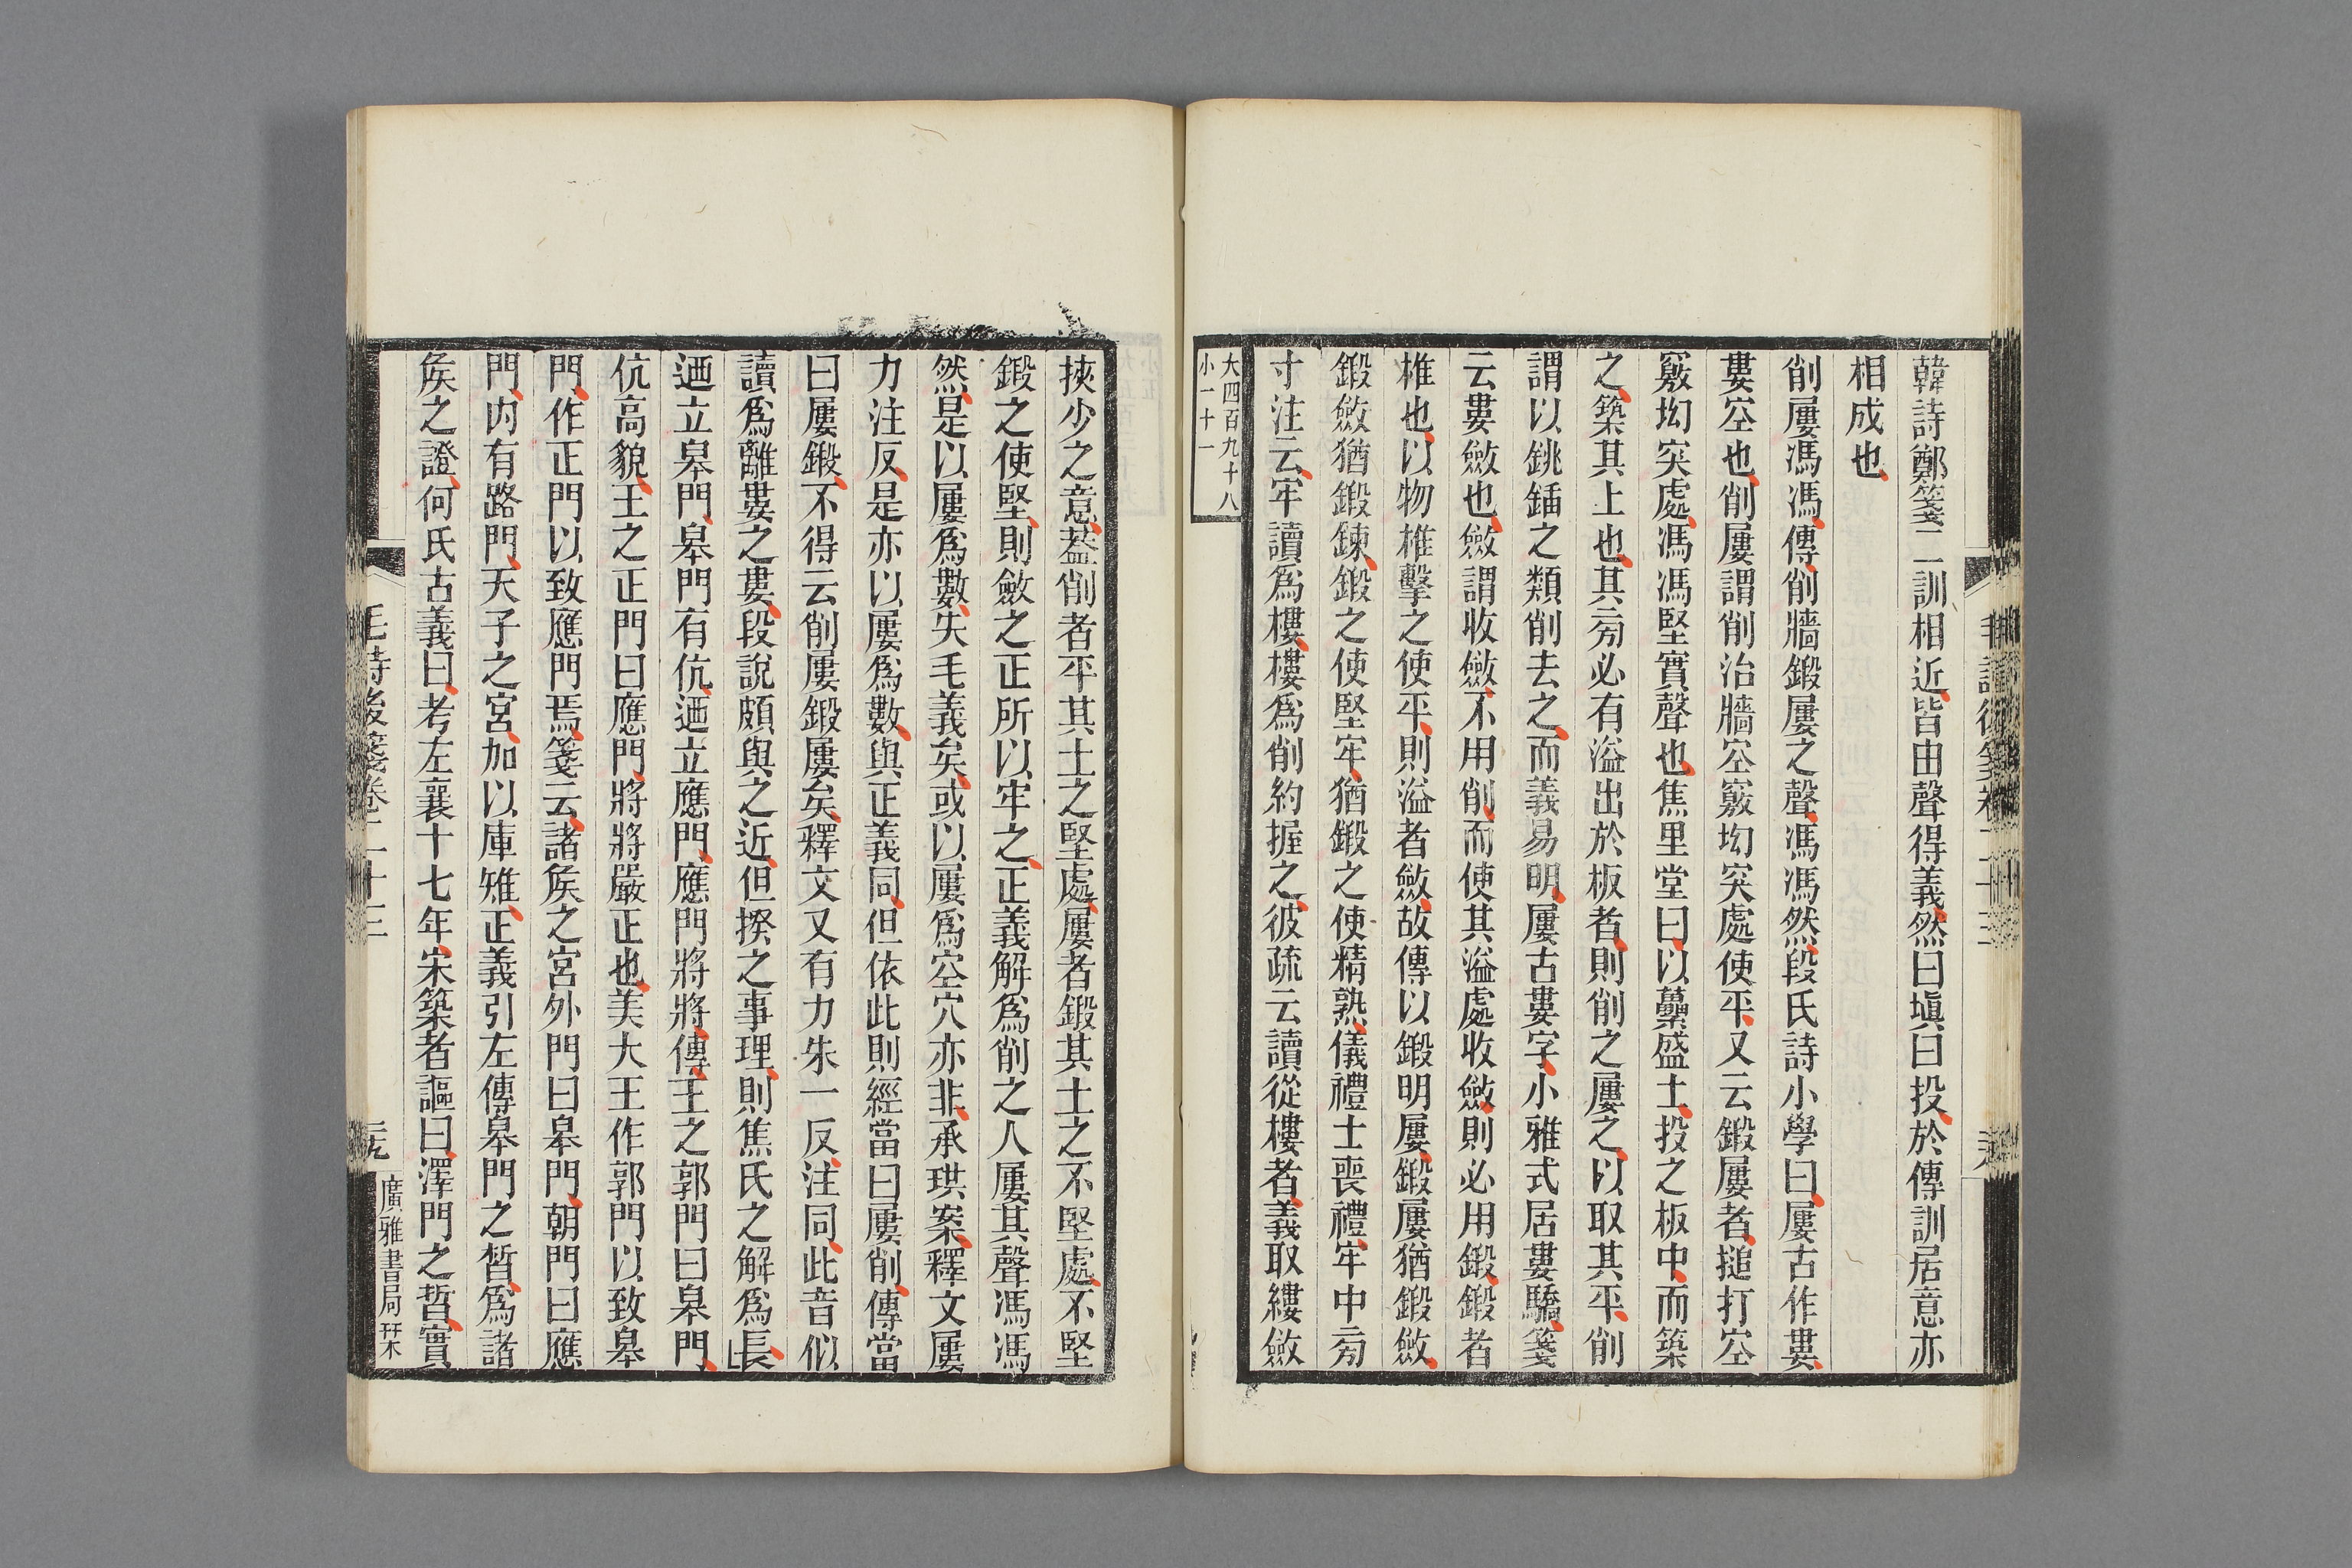 韓詩鄭箋二訓相近皆由聲得義然曰塡曰投於傳訓居意亦
相成也
削屢馮馮傳削牆鍛屢之聲馮馮然段氏詩小學曰屢古作婁
婁空也削屢謂削治牆空竅坳突處使平又云鍛屢者搥打空
竅坳突處馮馮堅實聲也焦里堂曰以虆盛土投之板中而築
之築其上也其旁必有溢出於板者則削之屢之以取其平削
謂以銚鍤之類削去之而義易明屢古婁字小雅式居婁驕箋
云婁斂也斂謂收斂不用削而使其溢處收斂則必用鍛鍛者
椎也以物椎擊之使平則溢者斂故傳以鍛明屢鍛屢猶鍛斂
鍛斂猶鍛鍊鍛之使堅牢猶鍛之使精熟儀禮士喪禮牢中旁
寸注云牢讀爲樓樓爲削約握之彼疏云讀從樓者義取縷斂
大四百九十八
小一十一
挾少之意葢削者平其土之堅處屢者鍛其土之不堅處不堅
鍛之使堅則斂之正所以牢之正義解爲削之人屢其聲馮馮
然是以屢爲數失毛義矣或以屢爲空穴亦非承珙案釋文屢
力注反是亦以屢爲數與正義同但依此則經當曰屢削傳當
曰屢鍛不得云削屢鍛屢矣釋文又有力朱一反注同此音似
讀爲離婁之婁段說頗與之近但揆之事理則焦氏之解爲長
迺立皋門皋門有伉迺立應門應門將將傳王之郭門曰皋門
伉高貌王之正門曰應門將將嚴正也美大王作郭門以致皋
門作正門以致應門焉箋云諸矦之宮外門曰皋門朝門曰應
門內有路門天子之宮加以庫雉正義引左傳皋門之晳爲諸
矦之證何氏古義曰考左襄十七年宋築者謳曰澤門之晳實
毛詩後箋卷二十三
廣雅書局栞